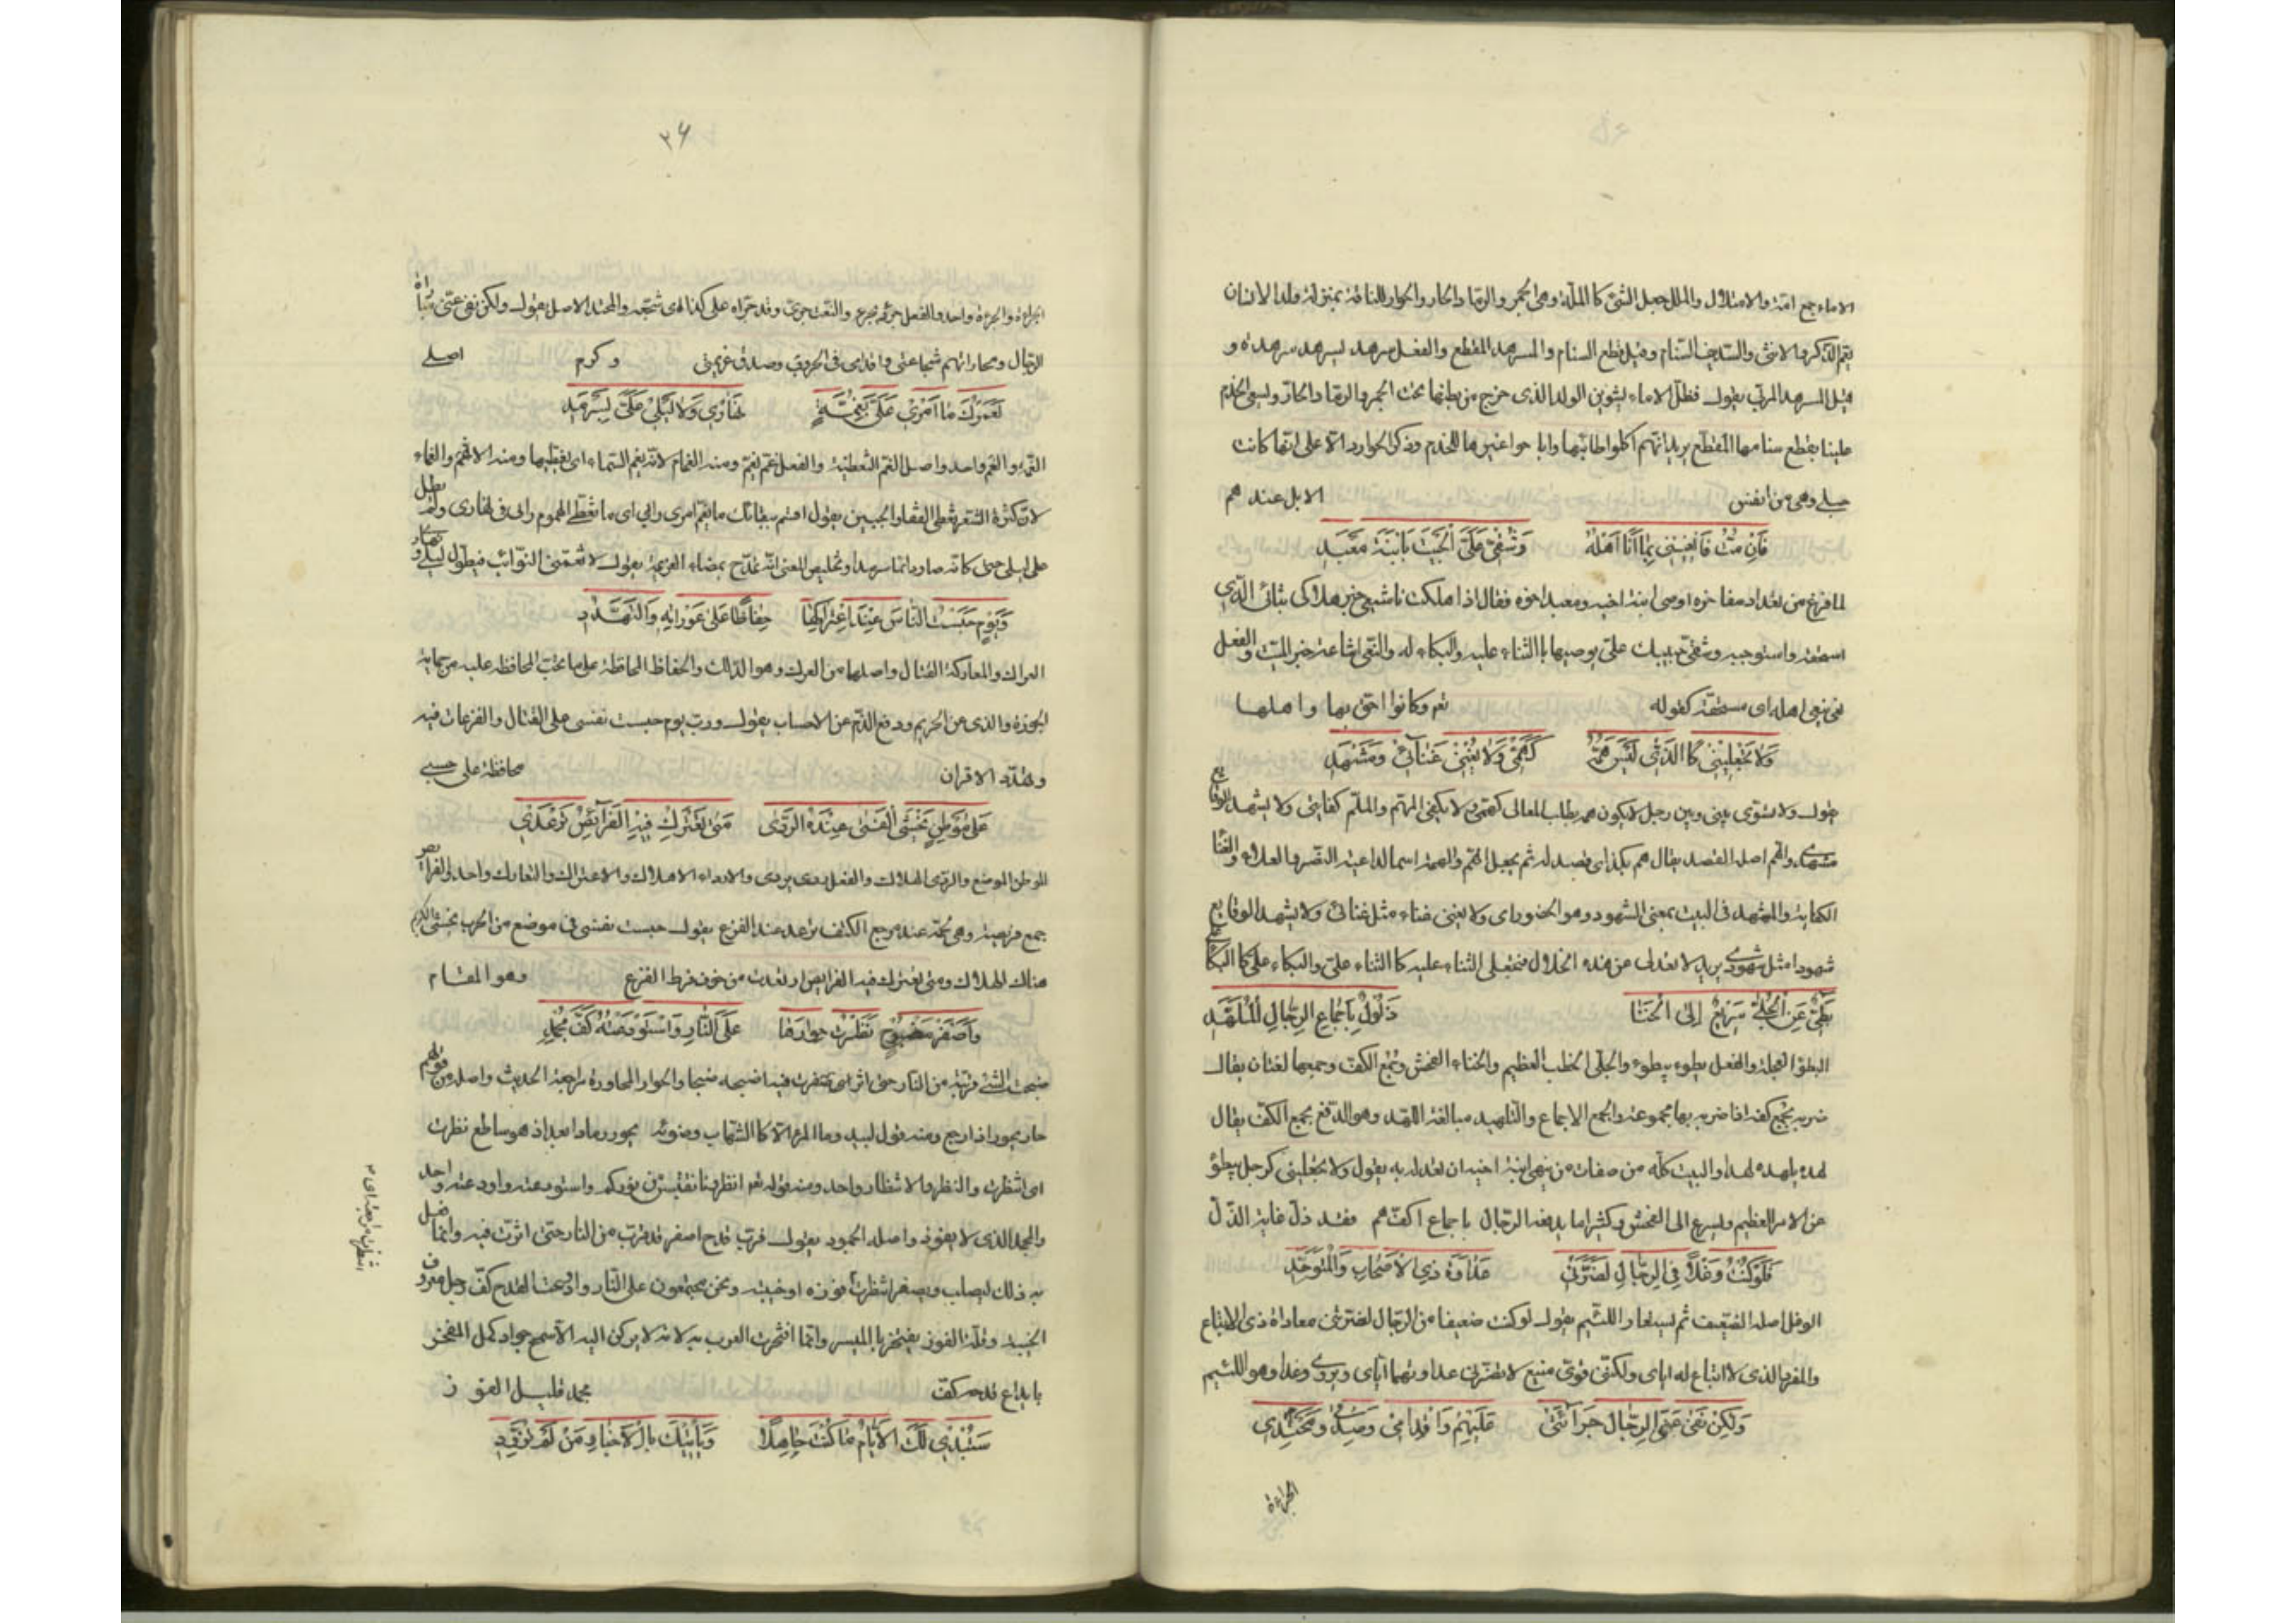 الاماء جمع امة والامتلال والملل جعل الشئ كا الملة وهى الجمر والرماد الحار والحوار للناقة بمنزلة ولد الانسان
يعم الذكر والانثى والسديف السنام وقيل قطع السنام والمسرهد المقطع والفعل سرهد يسرهد سرهدة و
قيل المسرهد المربى يقول فظل الاماء يشوين الولد الذى خرج من بطنها تحت الجمر والرماد الحار ويسعى الخدم
علينا بقطع سنامها المقطع يريد انهم اكلوا اطائبها واباحوا غيرها للخدم وذكر الحوار دالا على انها كانت
حبلى وهى من انفس الابل عندهم
فَاِن مُتُّ فَانعِينِى بِمَا اَنَا اَهلُهُ وَشُقِّى عَلَىَّ الجَيبَ يَا ابنَةَ مَعبَدِ
لما فرغ من تعداد مفاخره اوصى ابنة اخيه ومعبد اخوه فقال اذا هلكت فاشيعى خبر هلاكى بثنائى الذى
استحقه واستوجبه وشقى جيبك على يوصيها با الثناء عليه والبكاء له والنعى اشاعة خبر الميت والفعل
نعى ينعى اهله اى مستحقه كقوله تعم وكانوا احق بها واهلها
وَلا تَجعَلِينِى كَا الذِى لَيسَ هَمُّهُ كَهَمِّى وَلا يُغنِى غَنَائِى وَمَشهَدِ
يقول ولا تسوى بينى وبين رجل لا يكون همه بطلب المعالى كهمى ولا يكفى المهم والملم كفايتى ولا يشهد الوقايع
مشهدى والهم اصله القصد يقال هم بكذا اى قصد له ثم يجعل الهم والهمة اسما لداعية النفس الى العلا والغنا
الكفاية والمشهد فى البيت بمعنى الشهود وهو الحضور اى ولا يغنى غناء مثل غنائى ولا يشهد الوقايع
شهودا مثل شهودى يريد لا تعدلى من هذه الخلال فتجعلى الثناء عليه كا الثناء على والبكاء على كا البكاء
بَطِئٍ عَنِ الجُلَّى سَرِيعٍ اِلَى الخَنَا ذَلُولٍ بِاَجمَاعِ الرِجَالِ المُلَهَّدِ
البطؤ العجلة والفعل بطوء يبطوء والجلى الخطب العظيم والخناء الفحش وجمع الكف وجمعها لغتان يقال
ضربه بجمع كفه اذا ضربه بها مجموعة والجمع الاجماع والتلهيد مبالغة اللهد وهو الدفع بجمع الكف يقال
لهده يلهده لهدا والبيت كله من صفات من ينهى ابنة اخيه ان تعدله به يقول ولا تجعلينى كرجل يبطؤ
عن الامر العظيم ويسرع الى الفحش وكثيرا ما يدفعه الرجال باجماع اكفهم فقد ذل غاية الذل
فَلَو كُنتُ وَغلاً فِى الرِجَالِ لَضَرَّنِى عَدَاوَةُ ذِى الاَصحَابِ وَالمُتَوَحِّدِ
الوغل اصله الضعيف ثم يستعار اللئيم يقول لو كنت ضعيفا من الرجال لضرتنى معاداة ذى الاتباع
والمفرد الذى لا اتباع له اياى ولكننى قوى منيع لا تضرنى عداوتهما اياى ويروى وغدا وهو اللئيم
وَلكِن نَفَى عَنِّى الرِجَالَ جَرَائَتِى عَلَيهِم وَاِقدَامِى وَصِدقِى وَمَحتِدِى
الجراءة
٢٦
الجراءة والجرءة واحد والفعل جرؤ يجرؤ والنعت جرئ وقد جرأه على كذا اى شجعه والمحتد الاصل يقول ولكن نفى عنى مباراة
الرجال ومجاراتهم شجاعتى واقدامى فى الحروب وصدق عزيمتى وكرم اصلى
لَعَمرُكَ مَا اَمرِى عَلَىَّ بِغُمَّةٍ نَهَارِى وَلا لَيلِى عَلَىَّ بِسَرمَدِ
الغمة والغم واحد واصل الغم التغطية والفعل غم يغم ومنه الغمام لانه يغم السماء اى يغطيها ومنه الاغم والغماء
لان كثرة الشعر تغطى القفا والجبين يقول اقسم ببقائك ما يغم امرى رايى اى ما تغطى الهموم رايى فى نهارى ولا يطول
على ليلى حتى كانه صار دائما سرمدا وتلخيص المعنى انه تمدح بمضاء العزيمة يقول لا تغمنى النوائب فيطول ليلى ونهارى
وَيَومٍ حَبَستُ النَاسَ عِندَ اعتِرَاكِهَا حِفَاظًا عَلَى عَورَاتِهِ وَالتَهَدُّدِ
العراك والمعاركة القتال واصلهما من العرك وهو الدلك والحفاظ المحافظة على ما تجب المحافظة عليه من حماية
الحوزة والذى عن الحريم ودفع الذم عن الاحساب يقول ورب يوم حبست نفسى على القتال والفزعات فيه
وتهدد الاقران محافظة على حسبى
عَلَى مَوطِنٍ يَخشَى الفَتَى عِندَهُ الرَدَى مَتَى تَعتَرِك فِيهِ الفَرَائِصُ تُرعَدِ
الموطن الموضع والردى الهلاك والفعل ردى يردى والارداء الاهلاك والاعتراك والتعارك واحد والفرائص
جمع فريصة وهى لحمة عند مرجع الكتف ترعد عند الفزع يقول حبست نفسى فى موضع من الحرب يخشى الكريم
هناك الهلاك ومتى تعترك فيه الفرايص ارتعدت من خوف فرط الفزع وهو المقام
وَاَصفَرَ مَضبُوحٍ نَظَرتُ حِوَارَهَا عَلَى النَارِ وَاستَودَعتُهُ كَفَّ مُجمِدِ
ضبحت الشئ قربته من النار حتى اثرت فيه اضبحه ضبحا والحوار المحاورة مراجعة الحديث واصله من قولهم
حار يحور اذا رجع ومنه قول لبيد وما المرء الا كا الشهاب وضوئه يحور رمادا بعد اذ هو ساطع نظرت
اى انتظرت والنظر والانتظار واحد ومنه قوله تعم انظرونا نقتبس من نوركم واستودعته واودعته واحد
والمجمد الذى لا يفوز واصله الجمود يقول ورب قدح اصفر قد قرب من النار حتى اثرت فيه وانما فعل
به ذلك ليصلب ويصفر انتظرت فوزه او خيبته ونحن مجتمعون على النار واودعت القدح كف رجل معروف
الخيبة وقلة الفوز يفتخر با الميسر وانما افتخرت العرب به لانه لا يركن اليه الا سمح جواد كمل المفخر
بايداع قدحه كف مجمد قليل الفوز
سَتُبدِى لَكَ الاَيَّامُ مَا كُنتَ جَاهِلاً وَيَأتِيكَ بِالاَخبَارِ مَن لَم تُزَوِّدِ